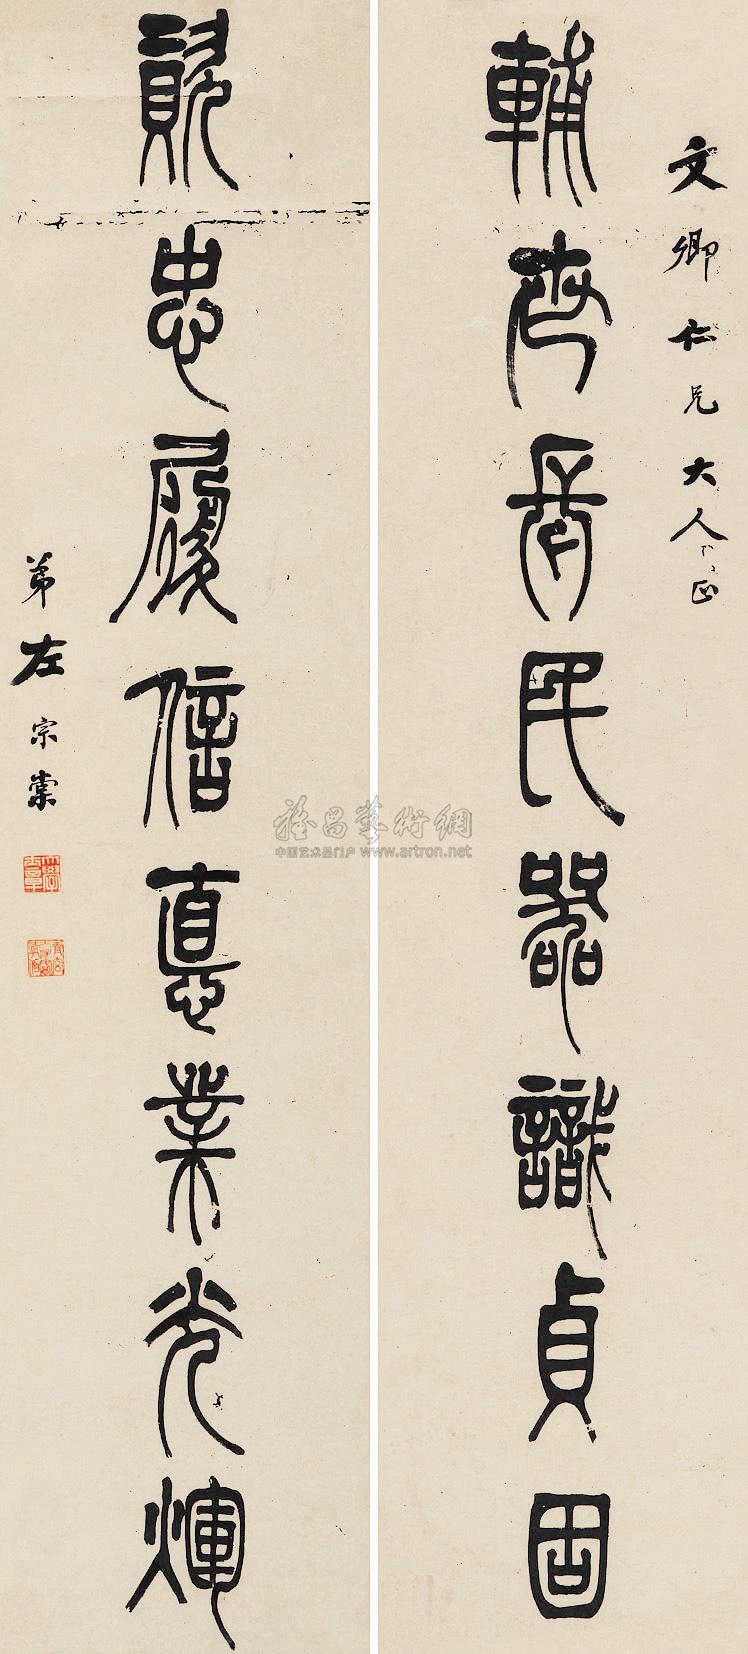 文卿仁兄大人正
輔世長民器識貞固
資忠履信悳業光輝
弟左宗棠
雅昌藝術網
中国艺术品门户 www.artron.net